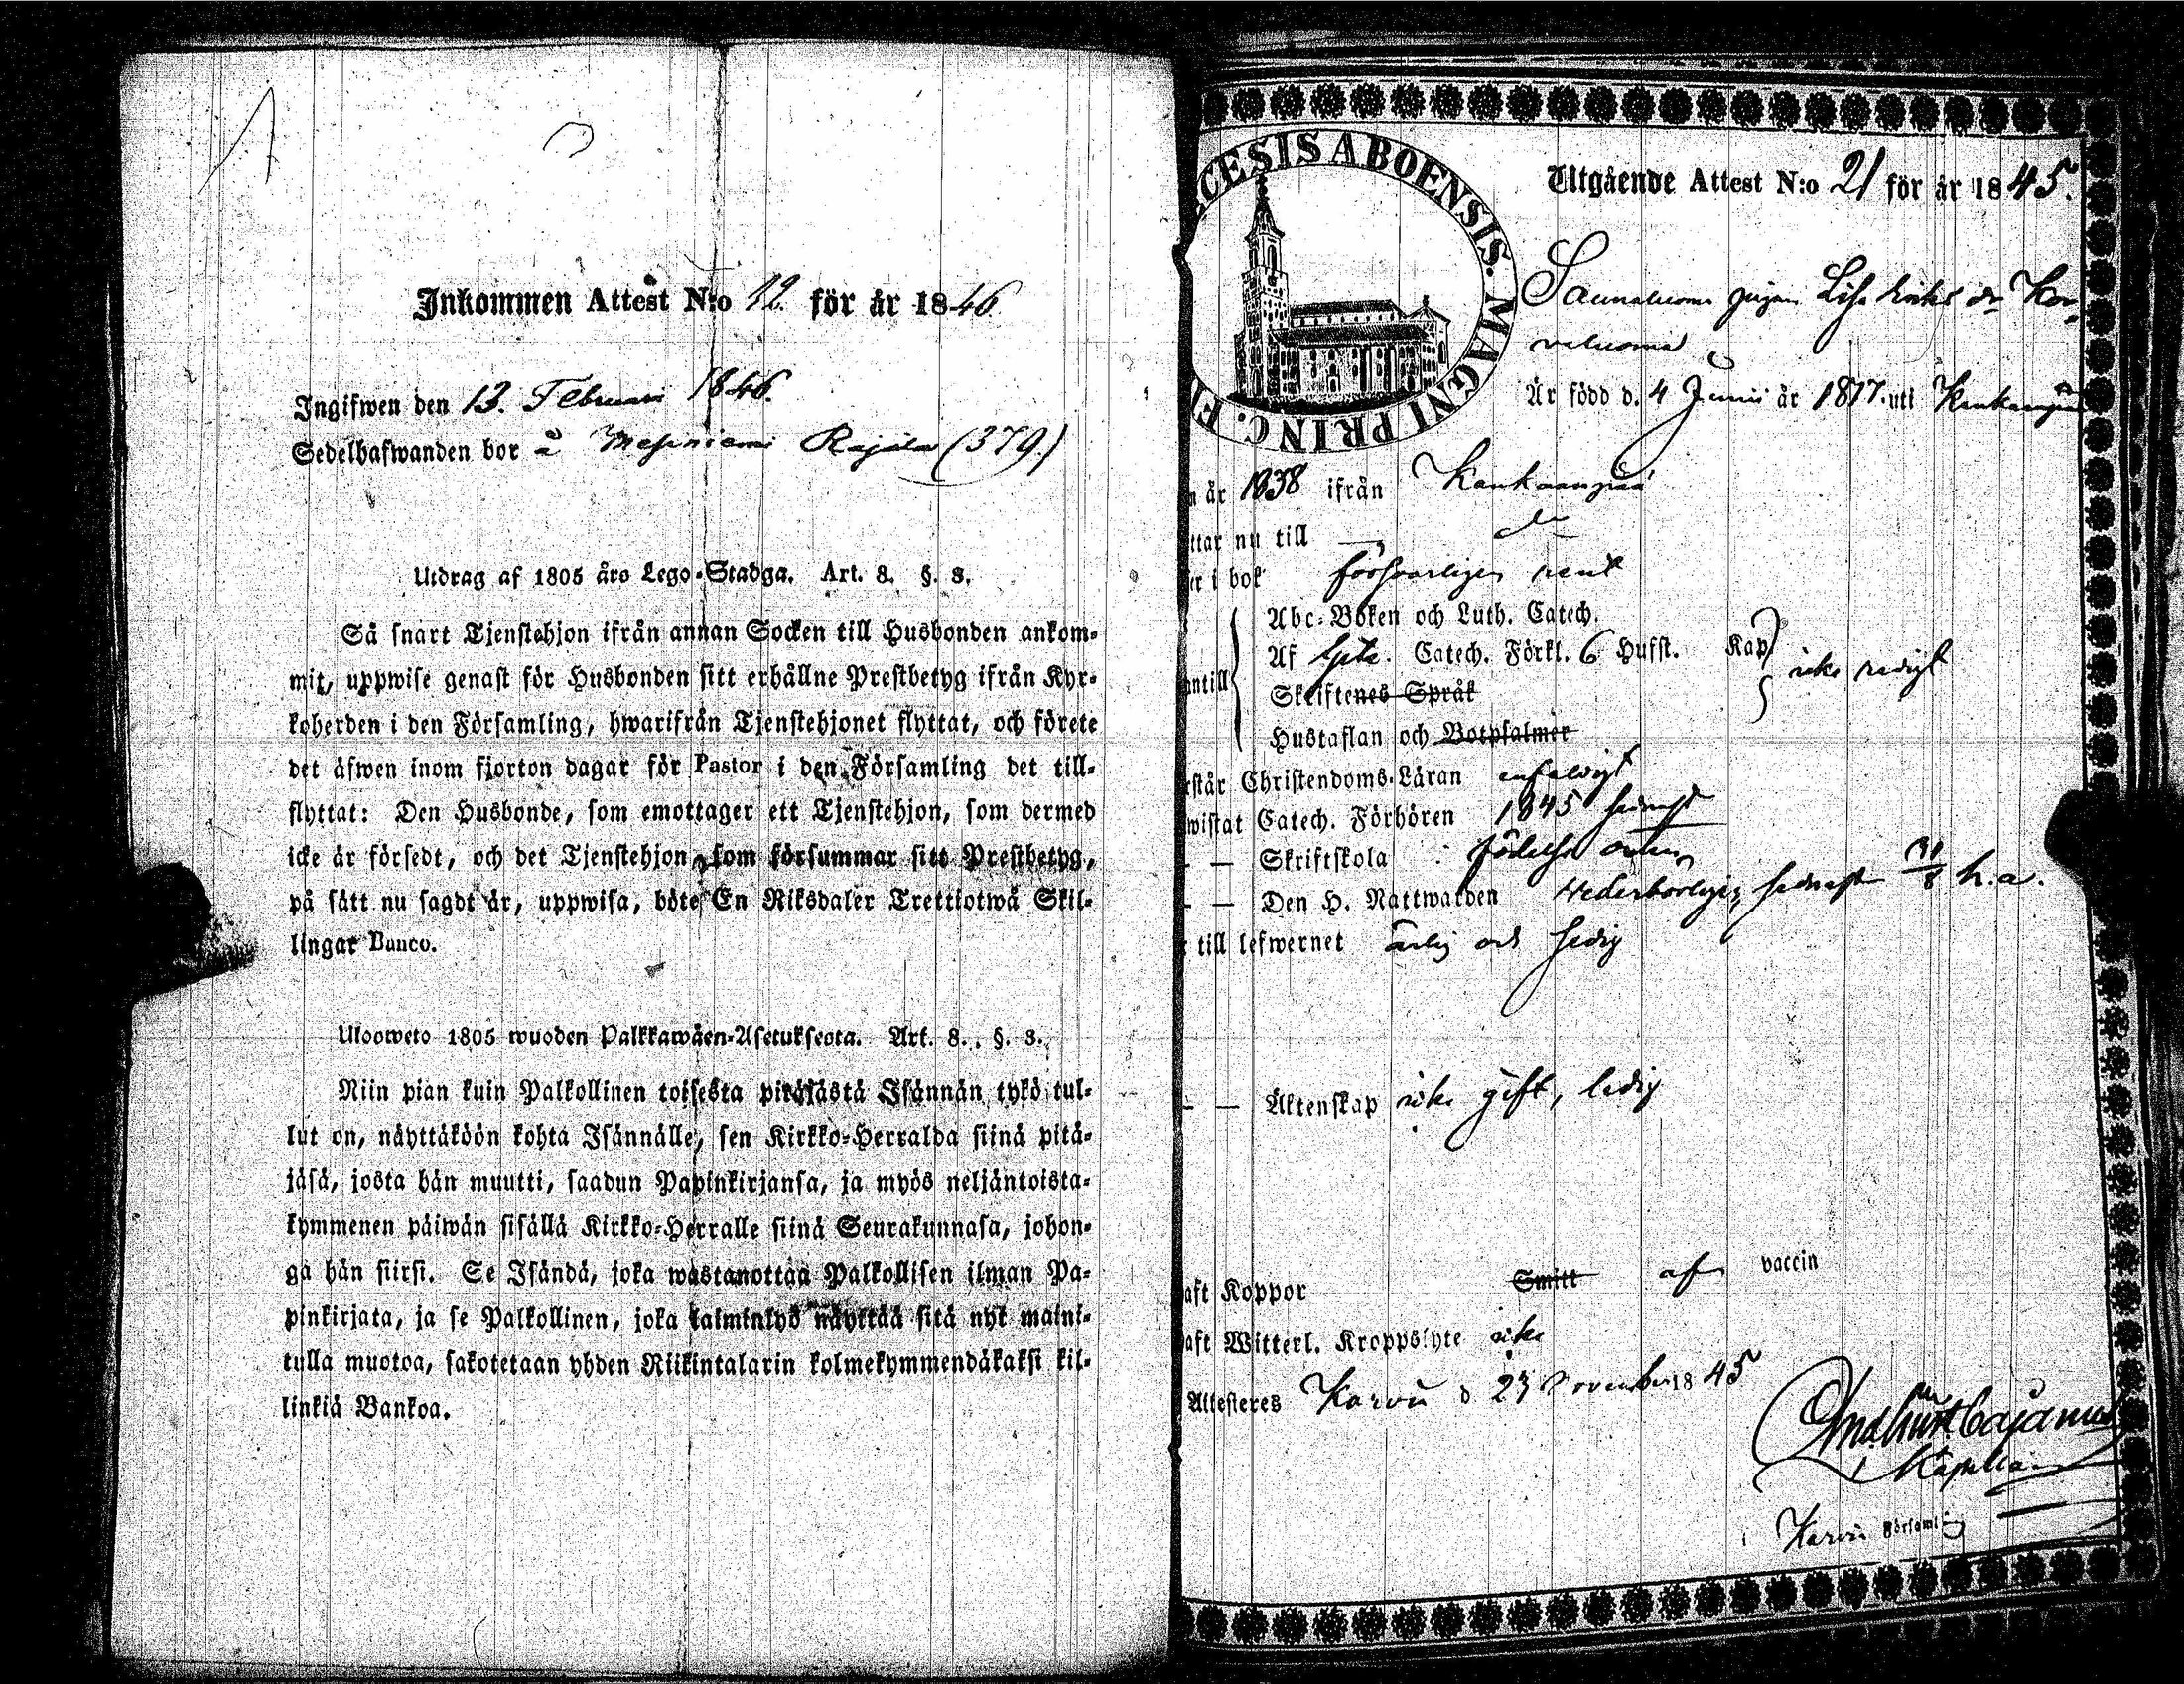 Inkommen Attest N:o 12. för år 1846
Ingifwen den 13. Februari 1846.
Sedelhafwanden bor å Rajala (379.)
Utdrag af 1805 års Lego-Stadga. Art. 8. §. 3.
Så snart Tjenstehjon ifrån annan Socken till Husbonden ankom-
mit, uppwise genast för Husbonden sitt erhållne Prestbetyg ifrån Kyr-
koherden i den Församling, hwarifrån Tjenstehjonet flyttat, och förete
det äfwen inom fjorton dagar för Pastor i den Församling det till-
flyttat: Den Husbonde, som emottager ett Tjenstehjon, som dermed
icke är försedt, och det Tjenstehjon, som försummar sitt Prestbetyg,
på sätt nu sagdt är, uppwisa, böte En Riksdaler Trettiotwå Skil-
lingar Banco.
Ulosweto 1805 wuoden Palkkawäen-Asetuksesta. Art. 8. §. 3.
Niin pian kuin Palkollinen toisesta pitäjästä Isännän tykö tul-
lut on, näyttäköön kohta Isännälle, sen Kirkko-Herralda siinä pitä-
jäsä, josta hän muutti, saadun Papinkirjansa, ja myös neljäntoista-
kymmenen päiwän sisällä Kirkko-Herralle siinä Seurakunnasa, johon-
ga hän siirsi. Se Isändä, joka wastanottaa Palkollisen ilman Pa-
pinkirjata, ja se Palkollinen, joka laiminlyö näyttää sitä nyt maini-
tulla muotoa, sakotetaan yhden Riikintalarin kolmekymmendäkaksi kil-
linkiä Bankoa.
CESIS ABOENSIS. MAGNI PRINC. FI
Utgående Attest N:o 21 för år 1845.
pigan Lisa
Är född d. 4 Junii år 1817 uti Kankaanpää
n år 1838 ifrån Kankaanpää
ttar nu till — do
er i bok försvarligen rent
antill
Abc-Boken och Luth. Catech.
Af Catech. Förkl. 6 Hufst. Kap
Skriftenes Språk
icke redigt
Hustaflan och Botpsalmer
rstår Christendoms-Läran enfaldigt
wistat Catech. Förhören 1845 sednast
— — Skriftskola födelse orten
— — Den H. Nattwarden Wederbörligen, sednast 31/8 h. a.
r till lefwernet ärlig och sedig
— — Äktenskap icke gift, ledig
aft Koppor Smitt af vaccin
aft Witterl. Kroppslyte icke
Attesteres Karvia d 23 November 1845
Cajanus
Kapellan
i Karvia Församling